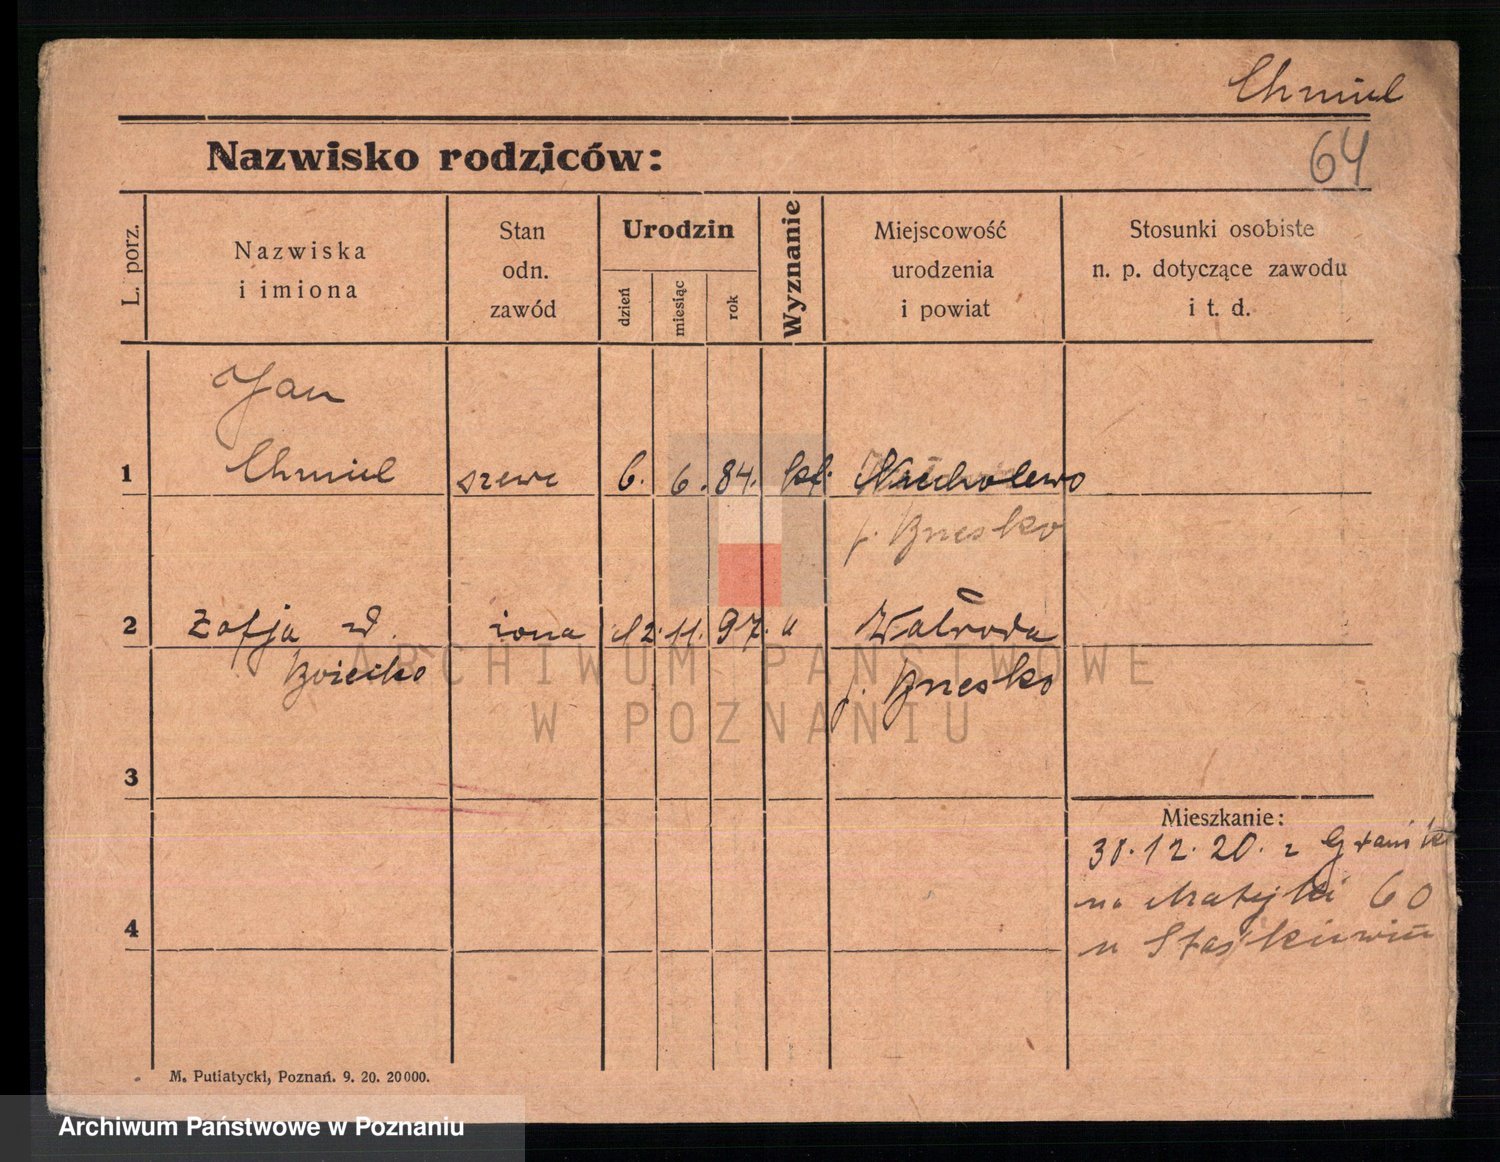 Chmiel
Nazwisko rodziców:
64
L. porz.
Nazwiska
i imiona
Stan
odn.
zawód
Urodzin
dzień
miesiąc
rok
Wyznanie
Miejscowość
urodzenia
i powiat
Stosunki osobiste
n. p. dotyczące zawodu
i t. d.
Jan
1 Chmiel szewc 6. 6. 84. kat.
p. Brzesko
2 Zofja żona 12. 11. 97. "
p. Brzesko
3
Mieszkanie:
30. 12. 20. z
na Matejki 60
4
u
M. Putiatycki, Poznań. 9. 20. 20000.
ARCHIWUM PAŃSTWOWE
W POZNANIU
Archiwum Państwowe w Poznaniu